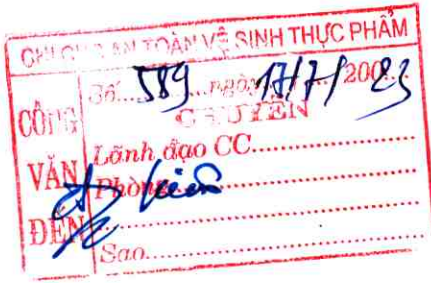 CHI CỤC AN TOÀN VỆ SINH THỰC PHẨM
CÔNG VĂN ĐẾN
Số 589 ngày 17/7/2023
CHUYỂN
Lãnh đạo CC
Phòng
Sao